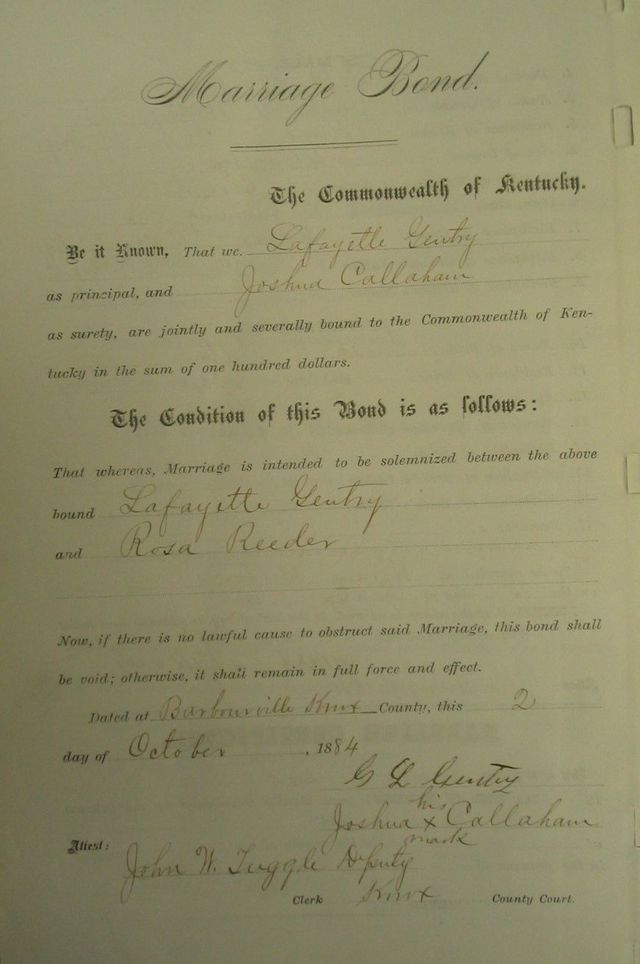 Marriage Bond.
The Commonwealth of Kentucky.
Be it Known, That we. Lafayette Gentry
as principal, and Joshua Callaham
as surety, are jointly and severally bound to the Commonwealth of Ken-
tucky in the sum of one hundred dollars.
The Condition of this Bond is as follows:
That whereas, Marriage is intended to be solemnized between the above
bound Lafayette Gentry
and Rosa Reeder
Now, if there is no lawful cause to obstruct said Marriage, this bond shall
be void; otherwise, it shall remain in full force and effect.
Dated at Barbourville Knox County, this 2
day of October, 1884
G L Gentry
his
Joshua x Callaham
mark
Attest:
John W. Tuggle Deputy
Clerk Knox County Court.